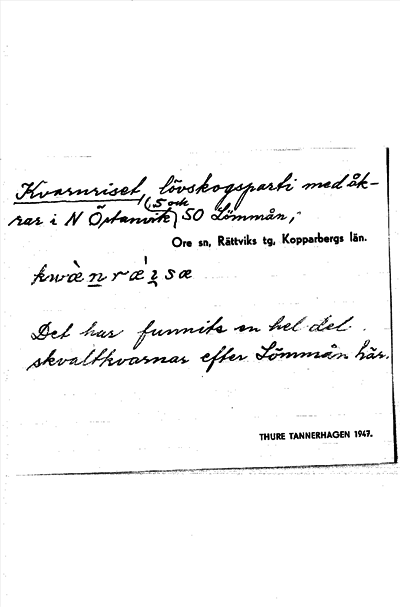 Kvarnriset, lövskogsparti med åk-
rar i N Östanvik (S och SO Lömmån,
Ore sn, Rättviks tg, Kopparbergs län.
kwὰn
Det har funnits en hel del
skvaltkvarnar efter Lömmån här.
THURE TANNERHAGEN 1947.